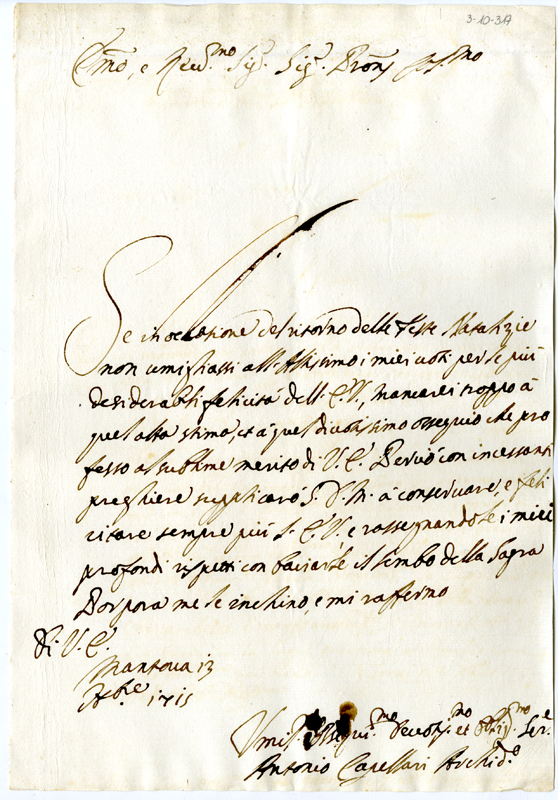 3-10-317
Em̃o, e Reu.mo Sig.r Sig.r Pron̄
Se in occasione del ritorno delle Feste Natalizie
non umigliassi all'Altissimo i miei voti per le più
desiderabili felicità dell' E.V., mancarei troppo à
quel alta stima, et à quel divotissimo ossequio che pro
fesso al sublime merito di V. E. Perciò con incessanti
preghiere supplicarò S. D. M. à conservare, e feli
citare sempre più l' E. V. e rassegnandole i miei
profondi rispetti con baciarle il lembo della Sagra
Porpora me le inchino, e mi raffermo
Di V. E.
Mantova 13
Xbre 1715
Umil. Ossequi.mo Devotis.mo et Ser.e
Antonio Capellari Archid.o